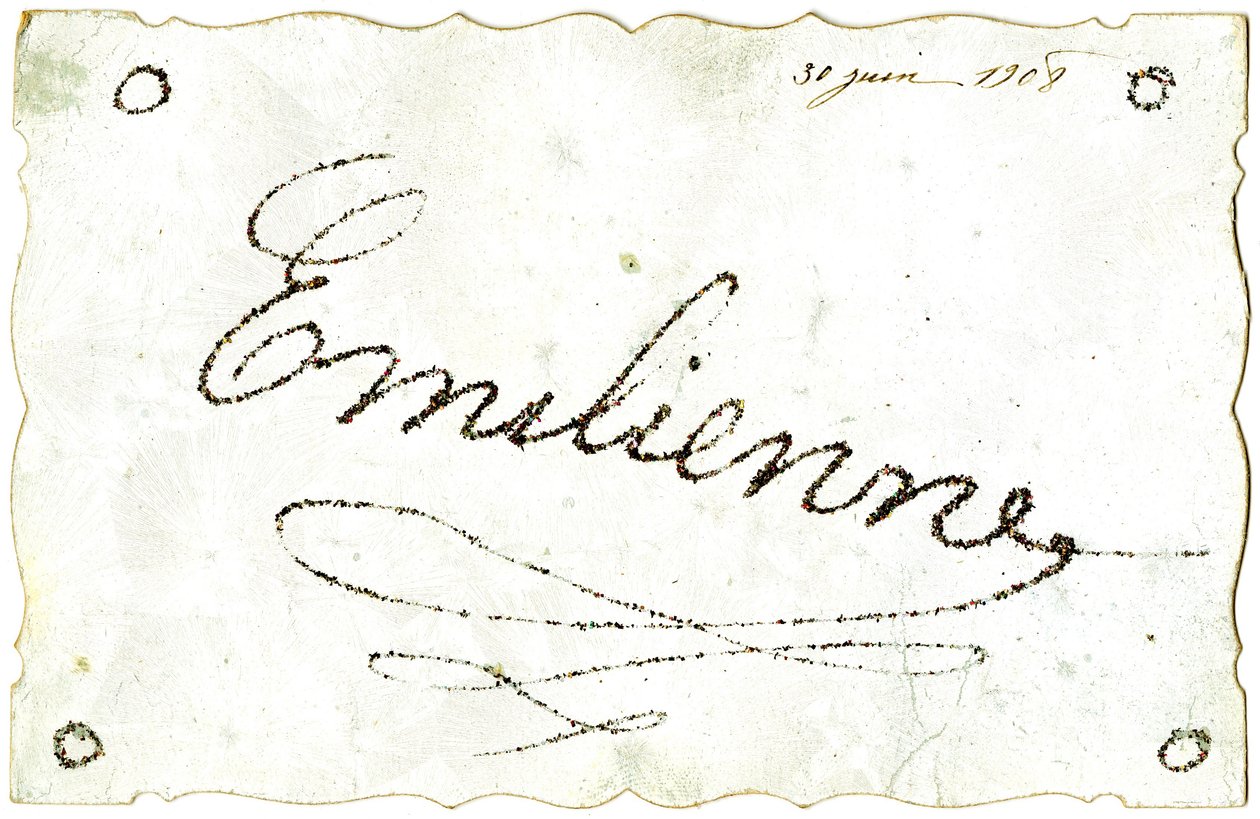 30 juin 1908
Emilienne